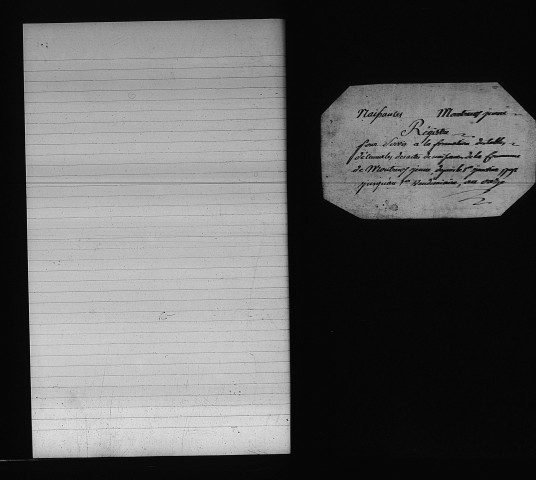 Naissances Montrevel jeune
Régistre
Pour Servir à la formation des tables
décennales des actes de naissances de la Commune
de jeune, depuis le 1er janvier 179
jusqu'au 1er Vendémiaire, an onze